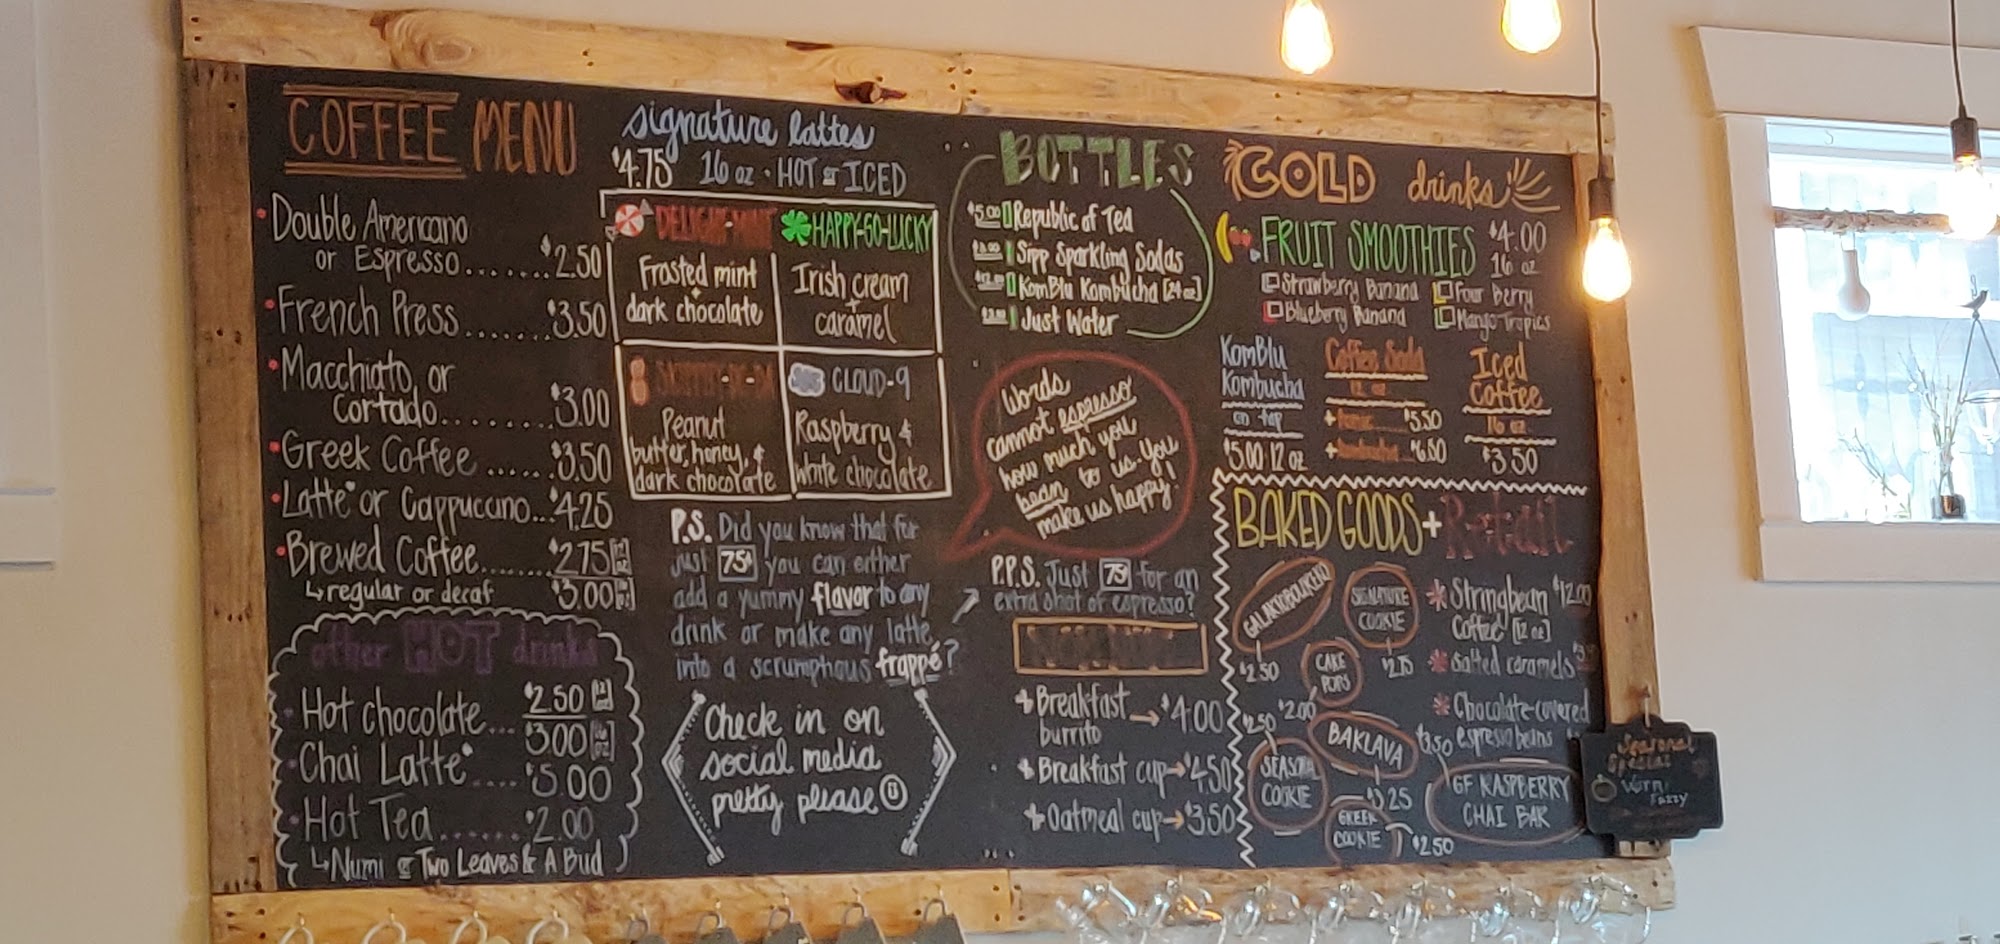 COFFEE MENU
Double Americano
or Espresso....... $2.50
French Press....... $3.50
Macchiato, or
Cortado......... $3.00
Greek Coffee ..... $3.50
Latte* or Cappuccino... $4.25
Brewed Coffee........ $2.75
↳ regular or decaf $3.00
other HOT drinks
Hot chocolate... $2.50
$3.00
Chai Latte* .... $5.00
Hot Tea...... $2.00
↳ Numi or Two Leaves & A Bud
signature lattes
$4.75 16 oz · HOT or ICED
DELIGHT-MINT
Frosted mint
+
dark chocolate
HAPPY-GO-LUCKY
Irish cream
+
caramel
Peanut
butter, honey, &
dark chocolate
CLOUD-9
Raspberry &
white chocolate
P.S. Did you know that for
just 75¢ you can either
add a yummy flavor to any
drink or make any latte
into a scrumptious frappé?
Check in on
social media
pretty please
BOTTLES
$5.00 Republic of Tea
Sipp Sparkling Sodas
KomBlu Kombucha [24 oz]
Just Water
Words
cannot espresso
how much you
bean to us. You
make us happy!
P.P.S. Just 75¢ for an
extra shot of espresso?
+ Breakfast
burrito → $4.00
+ Breakfast cup → $4.50
+ Oatmeal cup → $3.50
COLD drinks
FRUIT SMOOTHIES $4.00
16 oz
Strawberry Banana
Four Berry
Blueberry Banana
Mango Tropics
KomBlu
Kombucha
on tap
$5.00 12 oz
Coffee Soda
12 oz
+ $5.50
+ $6.00
Iced
Coffee
16 oz
$3.50
BAKED GOODS + Retail
GALAKTOBOUREKO
$2.50
SIGNATURE
COOKIE
$2.75
CAKE
POPS
$2.00
BAKLAVA
$3.25
SEASONAL
COOKIE
$2.50
GREEK
COOKIE
$2.50
GF RASPBERRY
CHAI BAR
$3.50
* Stringbean $12.00
Coffee [12 oz]
* Salted caramels
* Chocolate-covered
espresso beans
Seasonal
Special